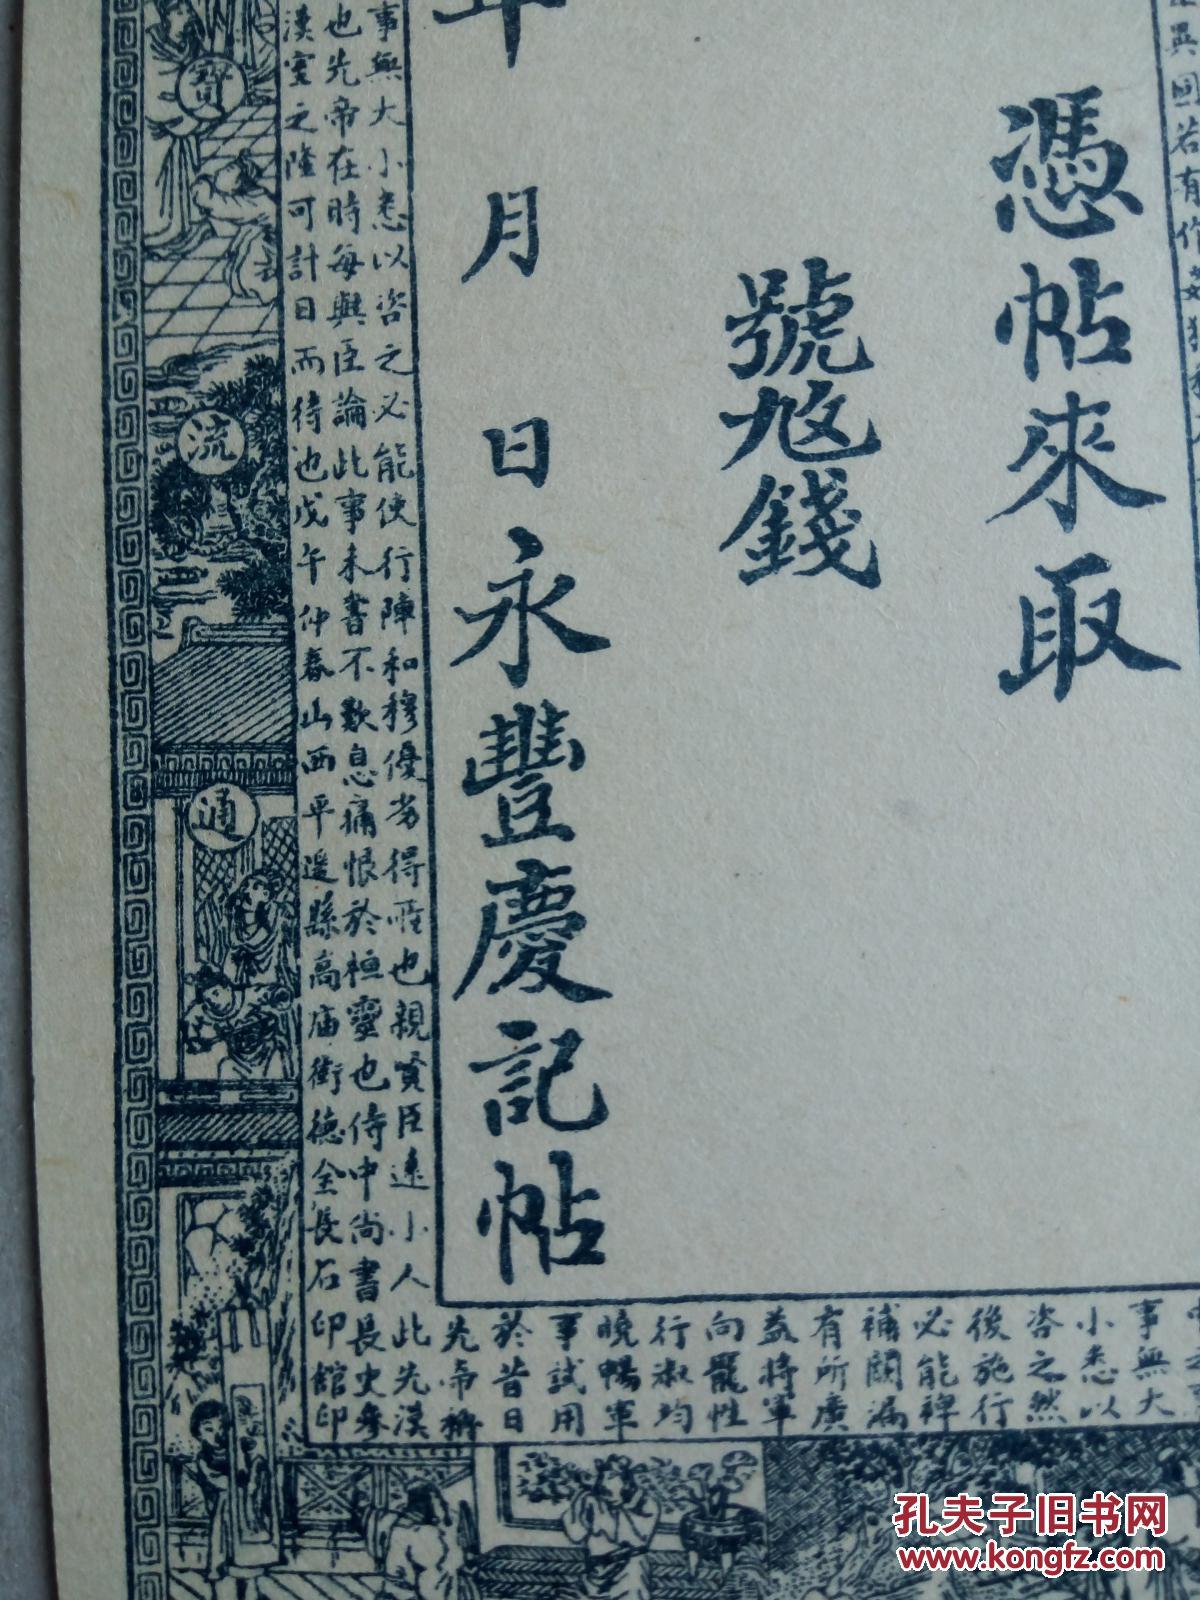 憑帖來取
號
錢
年 月 日 永豐慶記帖
異國若有作
事無大
小悉以
咨之然
後施行
必能裨
補闕漏
有所廣
益將軍
向寵性
行淑均
曉暢軍
事試用
於昔日
先帝稱
事無大小悉以咨之必能使行陣和穆優劣得所也親賢臣遠小人此先漢
也先帝在時每與臣論此事未嘗不歎息痛恨於桓靈也侍中尚書長史參
漢室之隆可計日而待也戊午仲春山西平遥縣高庙街德全長石印館印
寶
流
通
孔夫子旧书网
www.kongfz.com